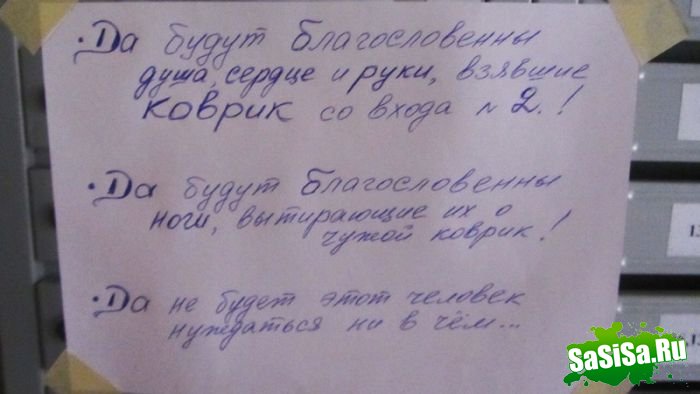 • Да будут благословенны
душа, сердце и руки, взявшие
коврик со входа № 2.!
• Да будут благословенны
ноги, вытирающие их о
чужой коврик!
• Да не будет этот человек
нуждаться ни в чём...
SaSiSa.Ru